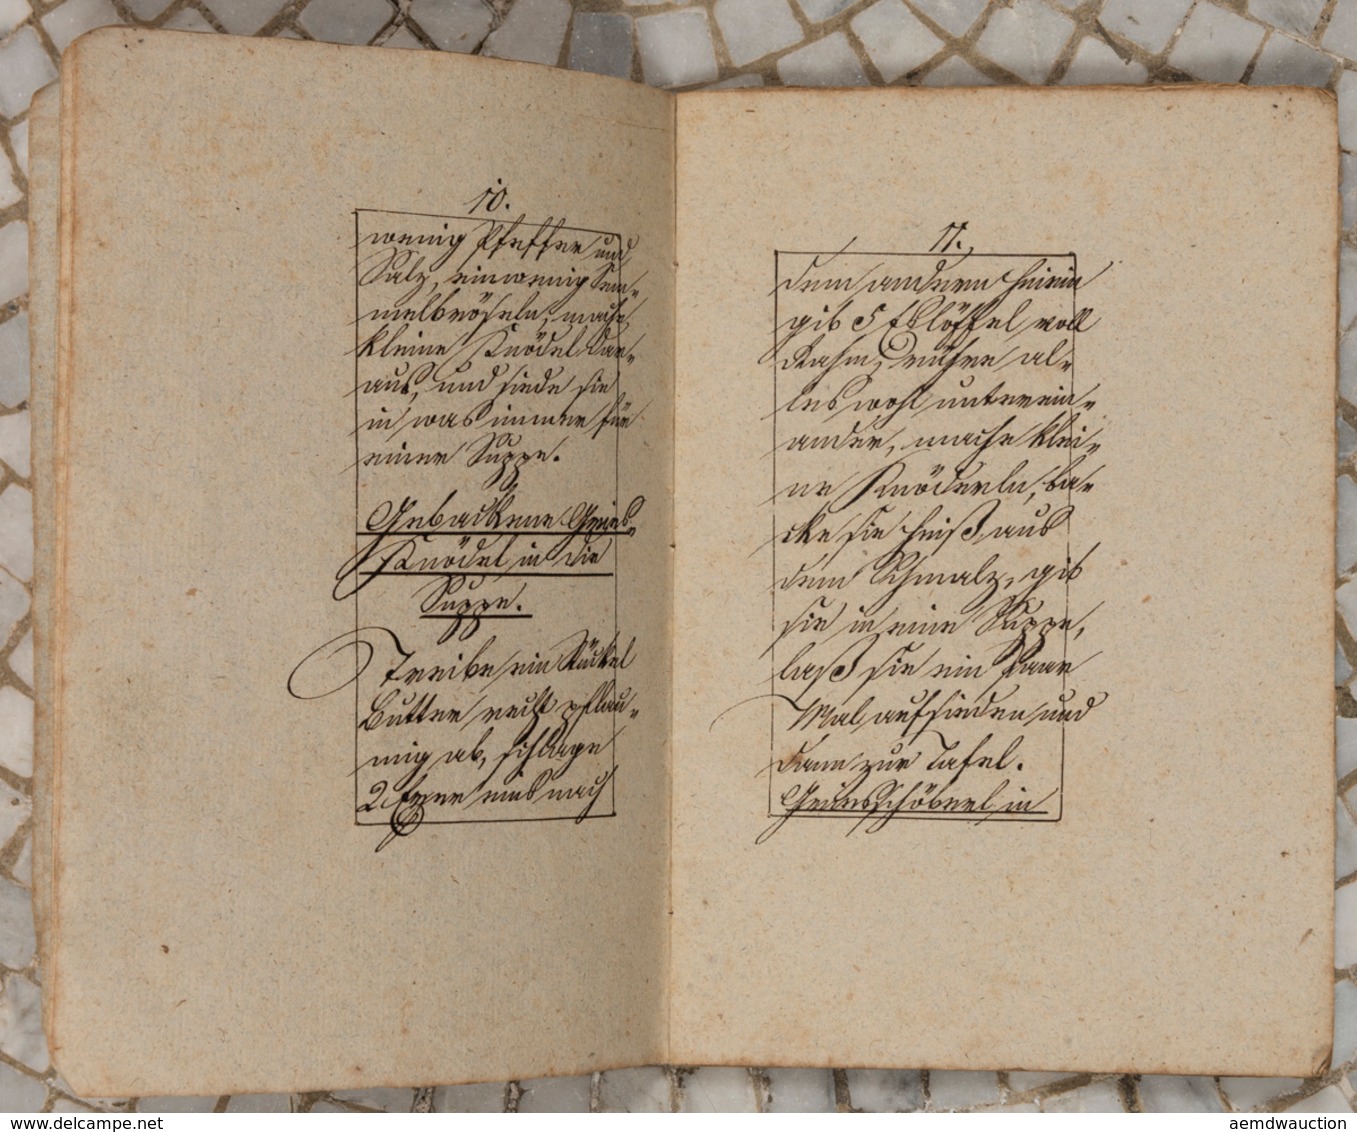 10.
wenig Pfeffer und
Salz, ein wenig Sem-
melbröseln, mache
kleine Knödel dar-
aus, und siede sie
in was immer für
einer Suppe.
Gebackene Gries-
Knödel in die
Suppe.
Treibe ein Stückel
Butter recht pflau-
mig ab, schlage
2 Eyer eins nach
11.
dem anderen hinein
gib 5 Eßlöffel voll
Rahm, rühre al-
les wohl unterein-
ander, mache klei-
ne Knöderln, ba-
cke sie heiß aus
dem Schmalz, gib
sie in eine Suppe,
laß sie ein Paar
Mal aufsieden und
dann zur Tafel.
Griesschöberl in
www.delcampe.net
aemdwauction